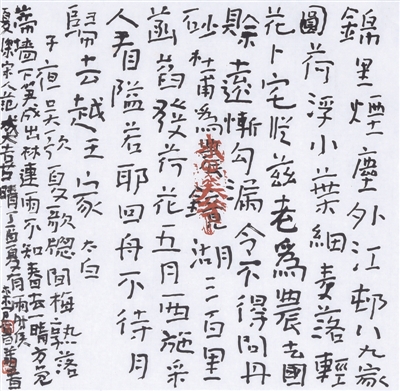 錦里煙塵外江邨八九家
圓荷浮小葉細麦落輕
花卜宅從茲老為農去國
賒遠慚勾漏令不得問丹
砂 杜甫為農 湖三百里
菡萏發荷花五月西施采
人看隘若耶回舟不待月
歸去越王家 太白
子夜吳歌夏歌牕間梅熟落
蒂墻下笋成出林連雨不知春去一晴方覺
夏深宋人范成大喜晴丁酉夏月雨